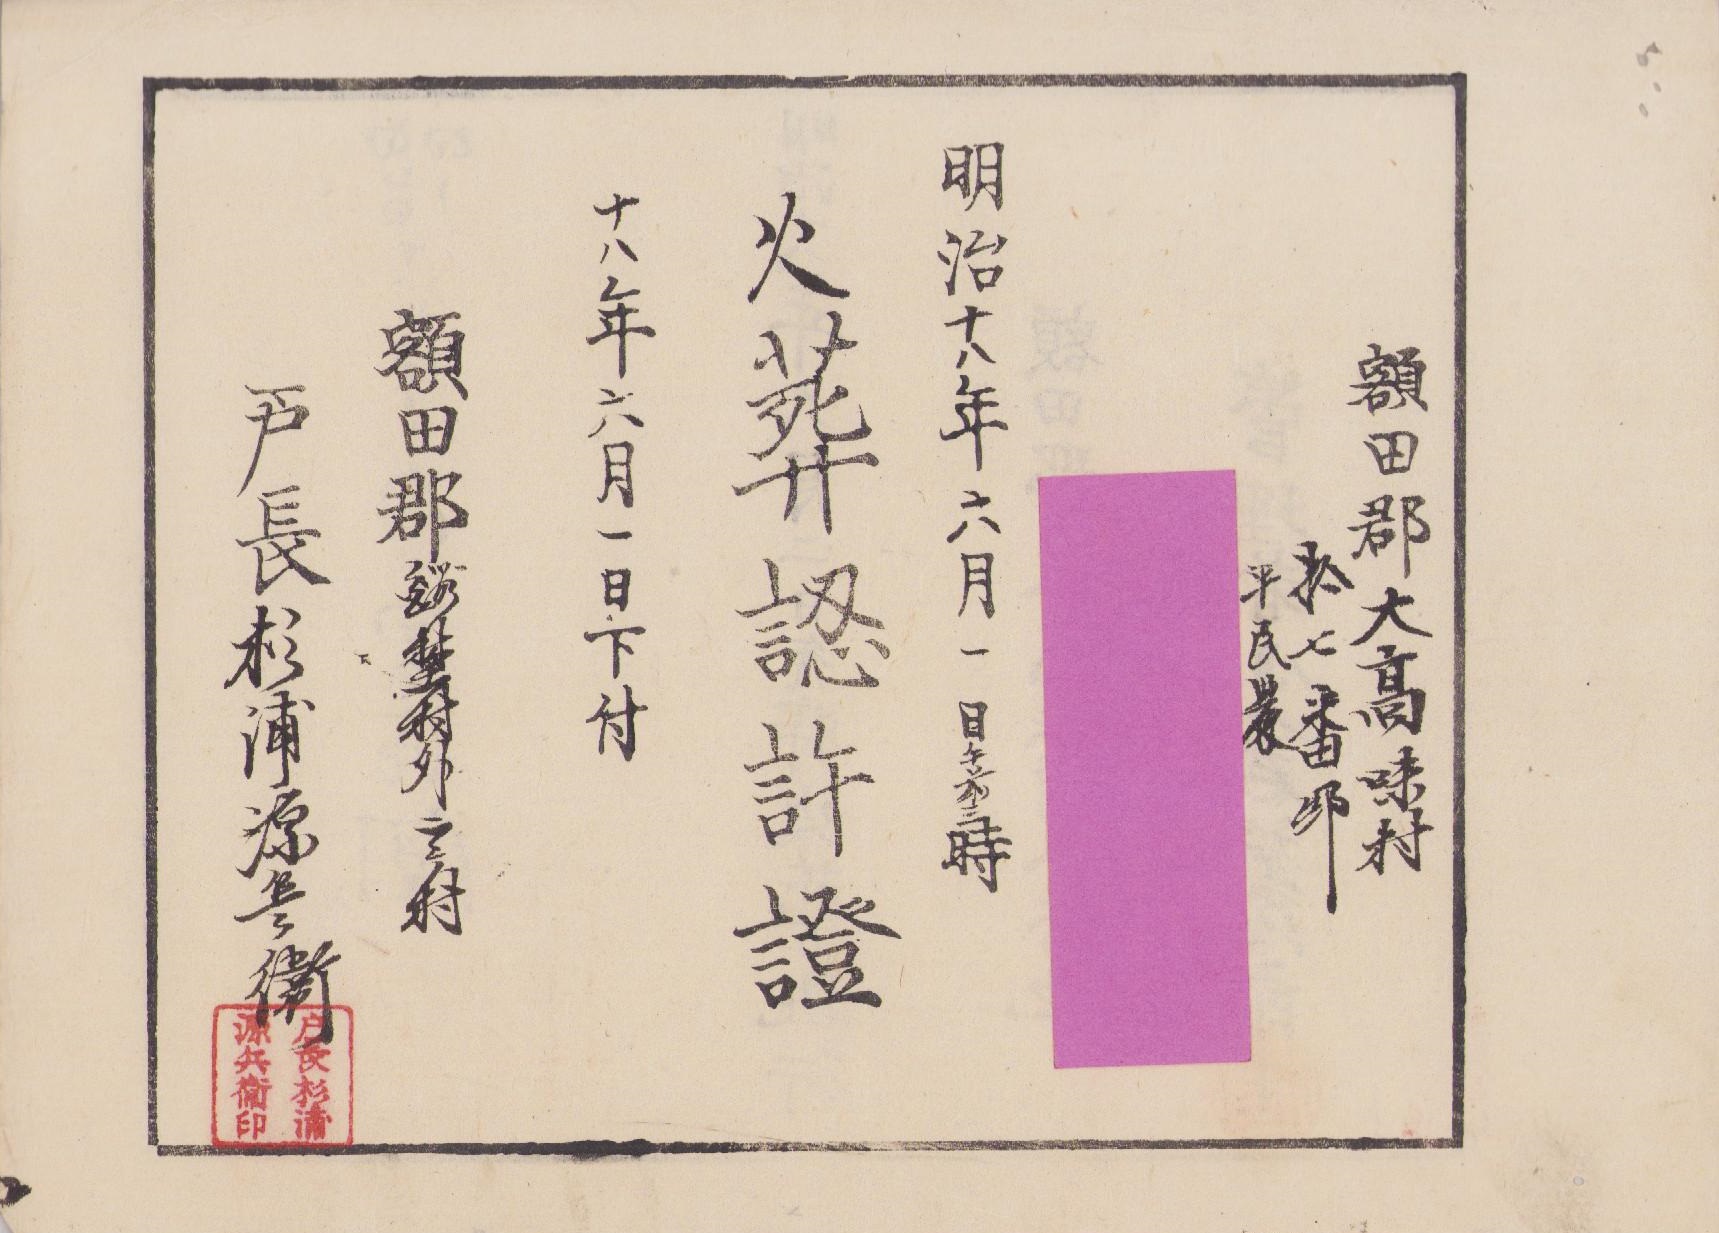 額田郡大高味村
拾七番邸
平民農
明治十八年六月一日午後三時
火葬認許證
十八年六月一日下付
額田郡 村外三村
戸長杉浦源兵衞
戸長杉浦
源兵衞印